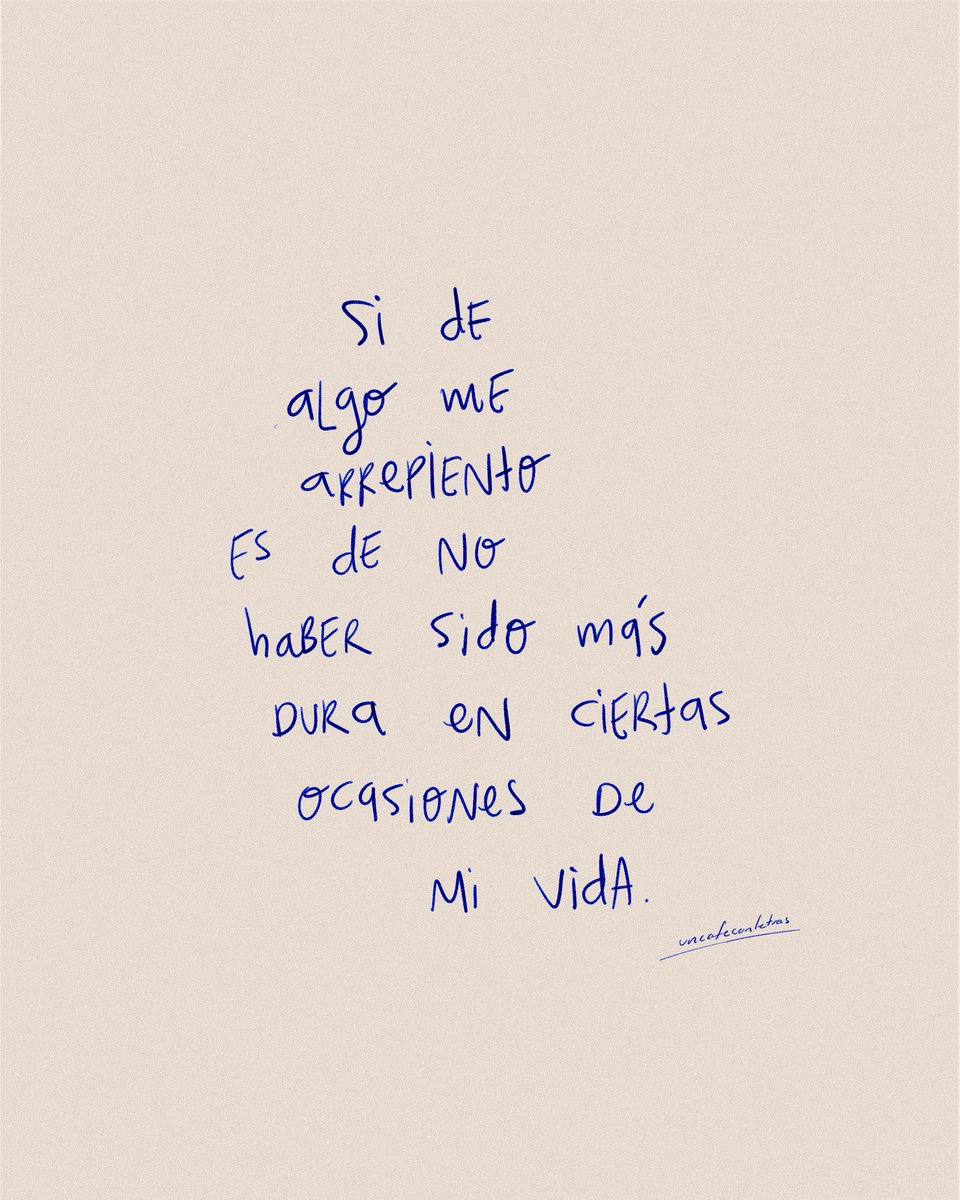 Si dE
algo mE
aRRepiENto
Es dE No
haBER sido más
DURa eN CiERtas
ocasioNes De
Mi VidA.
uncafeconletras